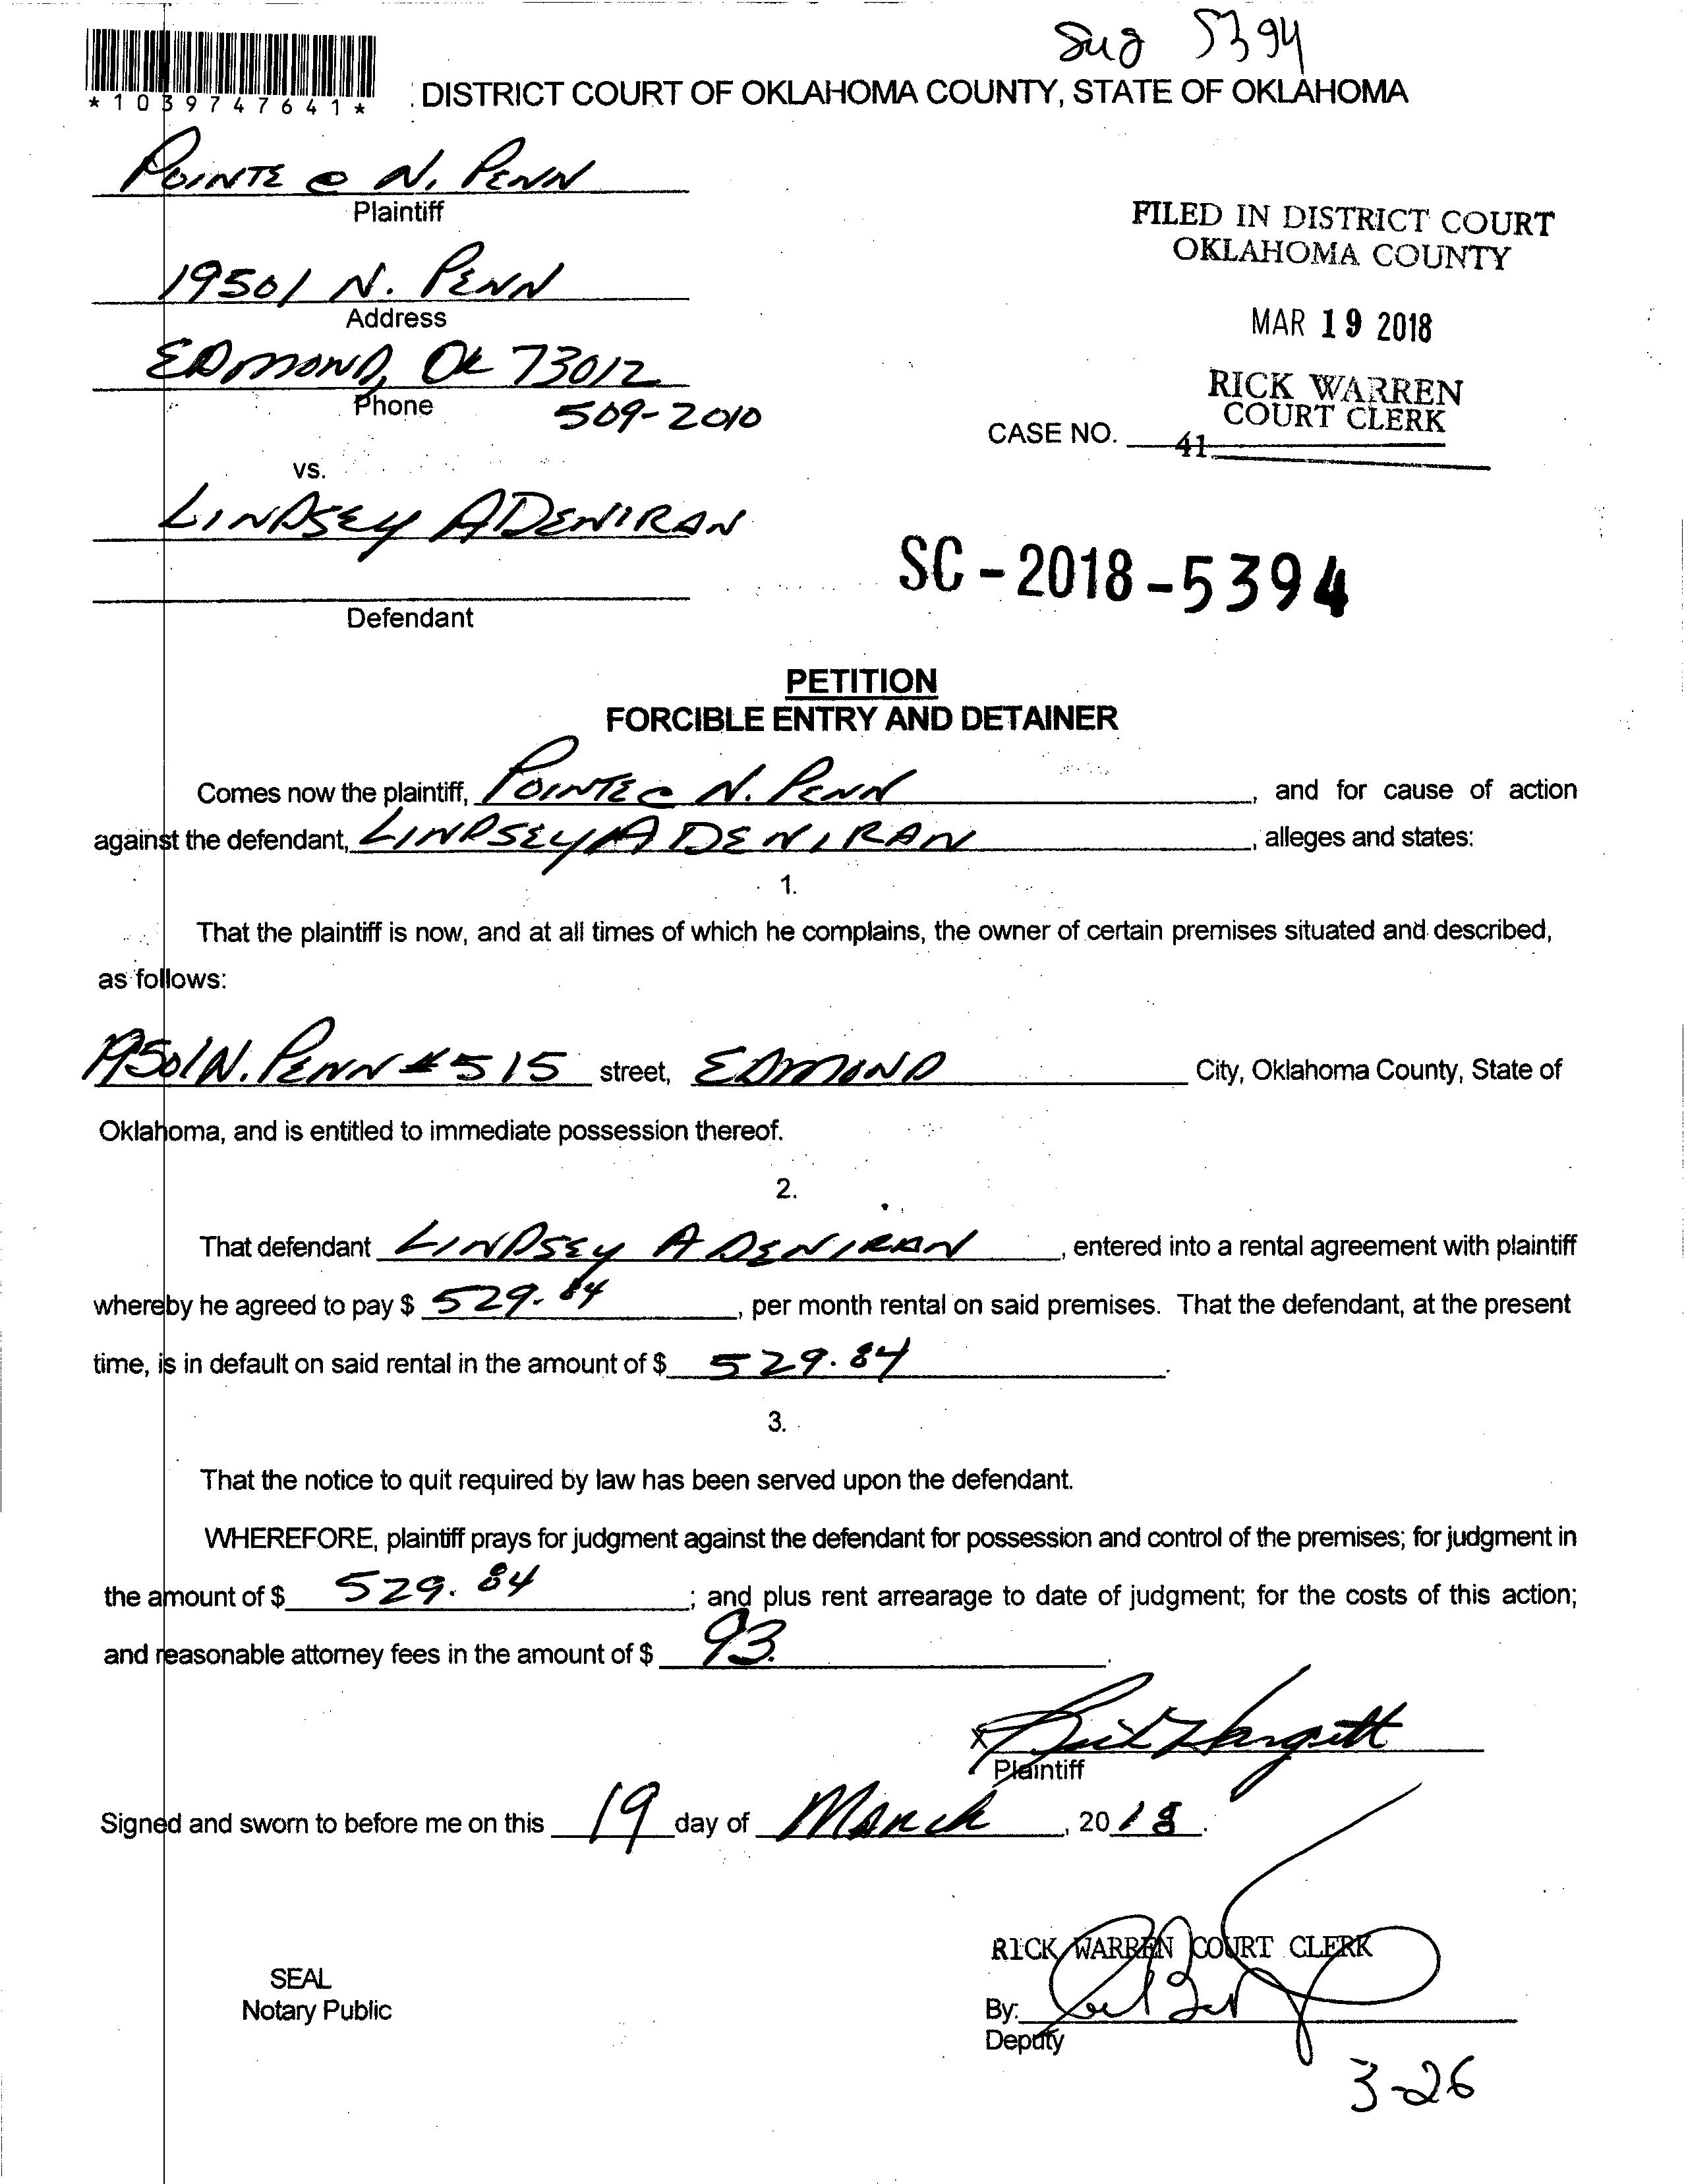 5394
*1039747641*
DISTRICT COURT OF OKLAHOMA COUNTY, STATE OF OKLAHOMA
POINTE @ N. PENN
Plaintiff
FILED IN DISTRICT COURT
OKLAHOMA COUNTY
19501 N. PENN
Address
MAR 19 2018
EDMOND, OK 73012
Phone
509-2010
RICK WARREN
COURT CLERK
CASE NO.
41
vs.
LINDSEY ADENIRAN
SC-2018-5394
Defendant
PETITION
FORCIBLE ENTRY AND DETAINER
Comes now the plaintiff, POINTE @ N. PENN, and for cause of action
against the defendant, LINDSEY ADENIRAN, alleges and states:
1.
That the plaintiff is now, and at all times of which he complains, the owner of certain premises situated and described,
as follows:
19501 N. PENN #515 street, EDMOND City, Oklahoma County, State of
Oklahoma, and is entitled to immediate possession thereof.
2.
That defendant LINDSEY ADENIRAN, entered into a rental agreement with plaintiff
whereby he agreed to pay $ 529.84, per month rental on said premises. That the defendant, at the present
time, is in default on said rental in the amount of $ 529.84.
3.
That the notice to quit required by law has been served upon the defendant.
WHEREFORE, plaintiff prays for judgment against the defendant for possession and control of the premises; for judgment in
the amount of $ 529.84; and plus rent arrearage to date of judgment; for the costs of this action;
and reasonable attorney fees in the amount of $ 93.
X
Plaintiff
Signed and sworn to before me on this 19 day of March, 2018.
RICK WARREN COURT CLERK
SEAL
Notary Public
By:
Deputy
3-26